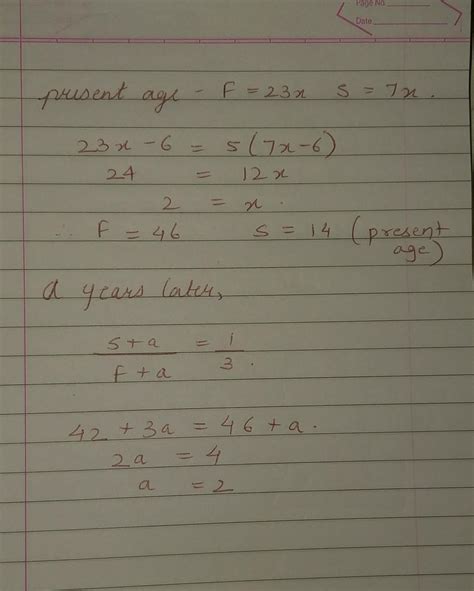 Page No.
Date
present age - F = 23x S = 7x.
23x - 6 = 5(7x-6)
24 = 12x
2 = x.
∴ F = 46 S = 14 (present age)
a years later,
s+a / f+a = 1/3.
42 + 3a = 46 + a.
2a = 4
a = 2